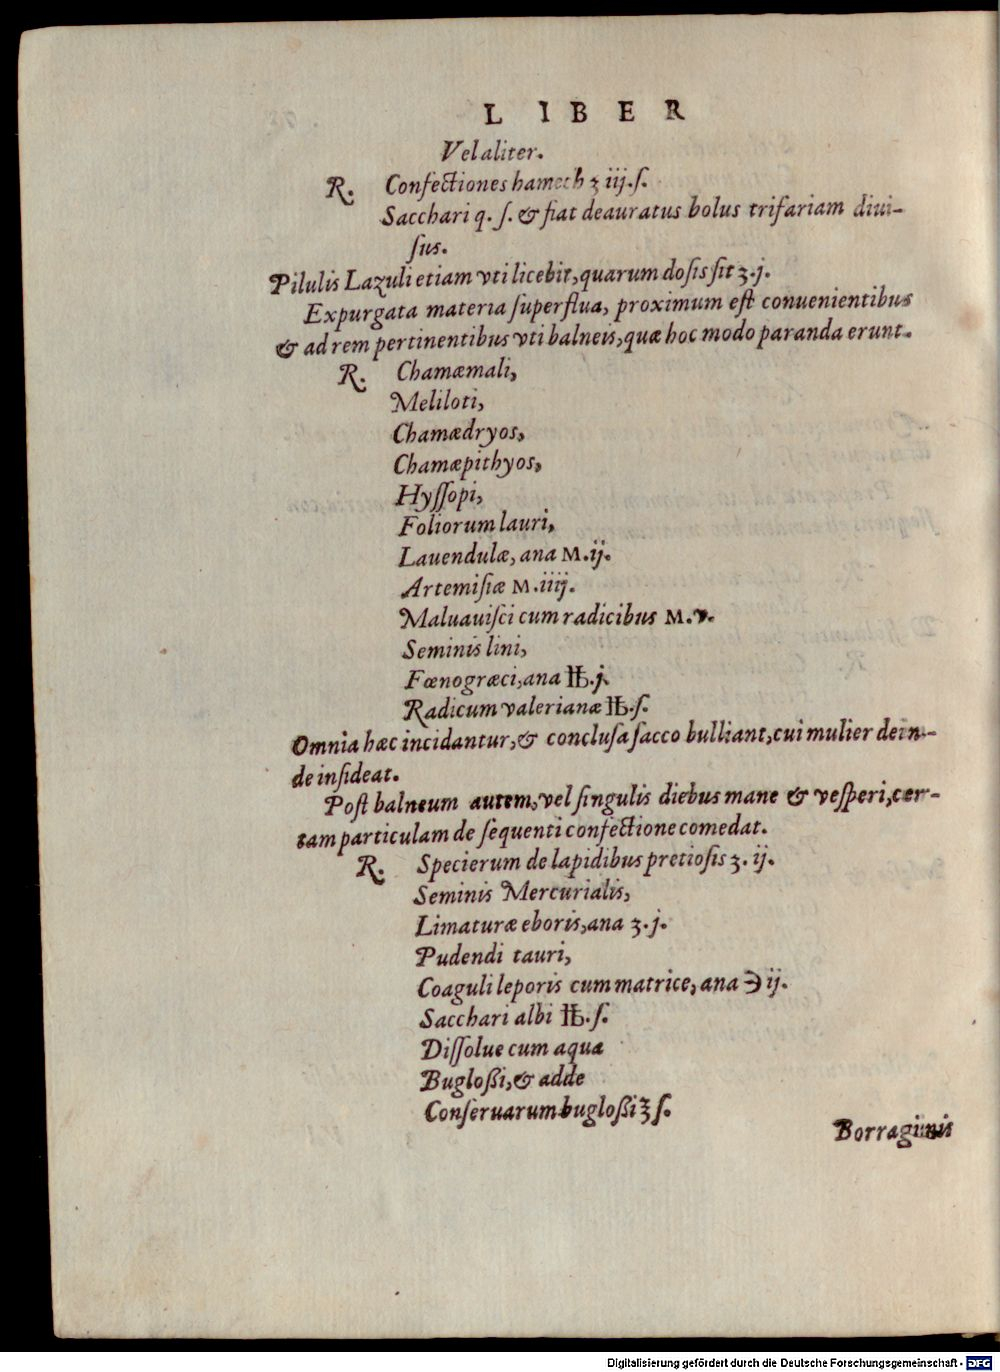 LIBER
Vel aliter.
℞. Confectiones hamech ʒ iij.ſ.
Sacchari q. ſ. & fiat deauratus bolus trifariam diui-
ſus.
Pilulis Lazuli etiam vti licebit, quarum doſis ſit ʒ.j.
Expurgata materia ſuperflua, proximum eſt conuenientibus
& ad rem pertinentibus vti balneis, quæ hoc modo paranda erunt.
℞. Chamæmali,
Meliloti,
Chamædryos,
Chamæpithyos,
Hyſſopi,
Foliorum lauri,
Lauendulæ, ana M.ij.
Artemiſiæ M.iiij.
Maluauiſci cum radicibus M.v.
Seminis lini,
Fœnogræci, ana ℔.j.
Radicum valerianæ ℔.ſ.
Omnia hæc incidantur, & concluſa ſacco bulliant, cui mulier dein-
de inſideat.
Poſt balneum autem, vel ſingulis diebus mane & veſperi, cer-
tam particulam de ſequenti confectione comedat.
℞. Specierum de lapidibus pretioſis ʒ. ij.
Seminis Mercurialis,
Limaturæ eboris, ana ʒ.j.
Pudendi tauri,
Coaguli leporis cum matrice, ana ℈ ij.
Sacchari albi ℔.ſ.
Diſſolue cum aqua
Bugloßi, & adde
Conſeruarum bugloßi ℥ ſ.
Borraginis
Digitalisierung gefördert durch die Deutsche Forschungsgemeinschaft - DFG